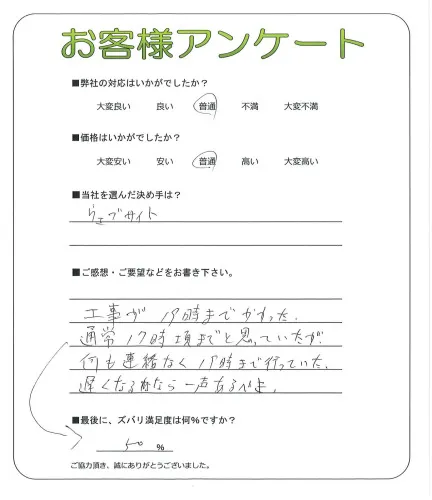 お客様アンケート
■弊社の対応はいかがでしたか？
大変良い 良い 普通 不満 大変不満
■価格はいかがでしたか？
大変安い 安い 普通 高い 大変高い
■当社を選んだ決め手は？
ウェブサイト
■ご感想・ご要望などをお書き下さい。
工事が 19時までかかった.
通常 17時頃までと思っていたが.
何も連絡なく 19時まで行っていた.
遅くなるなら一声あるべき.
■最後に、ズバリ満足度は何%ですか？
50 %
ご協力頂き、誠にありがとうございました。